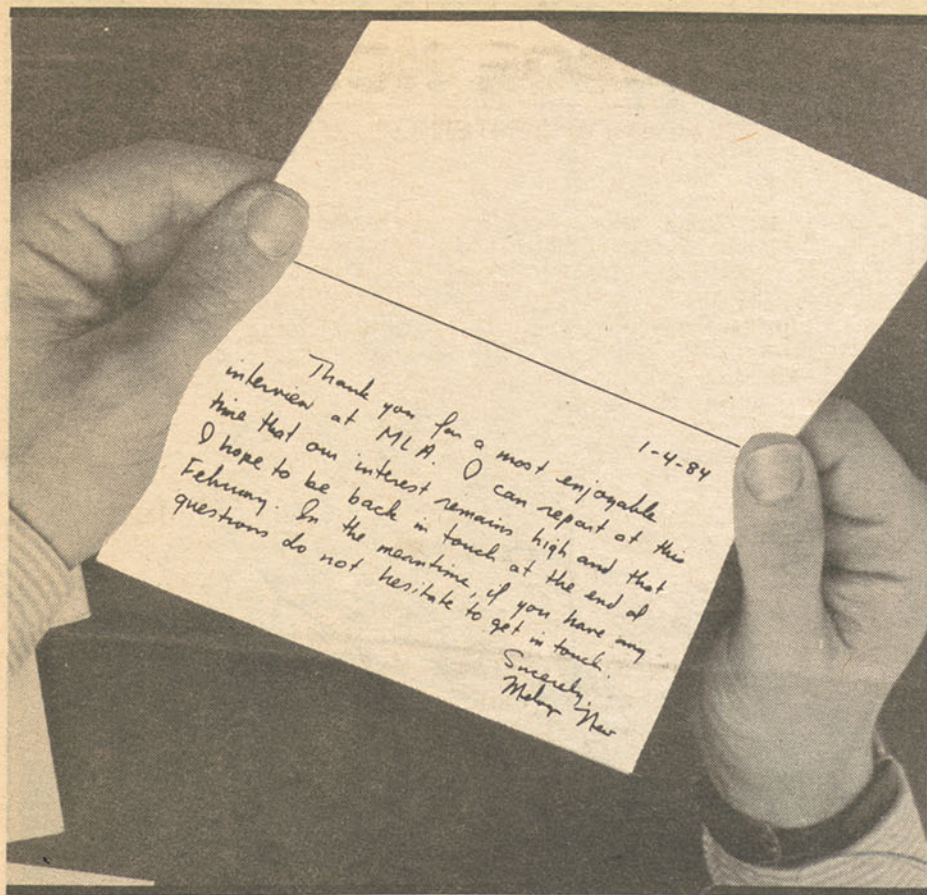 1-4-84
Thank you for a most enjoyable
interview at MLA. I can report at this
time that our interest remains high and that
I hope to be back in touch at the end of
February. In the meantime, if you have any
questions do not hesitate to get in touch.
Sincerely,
New